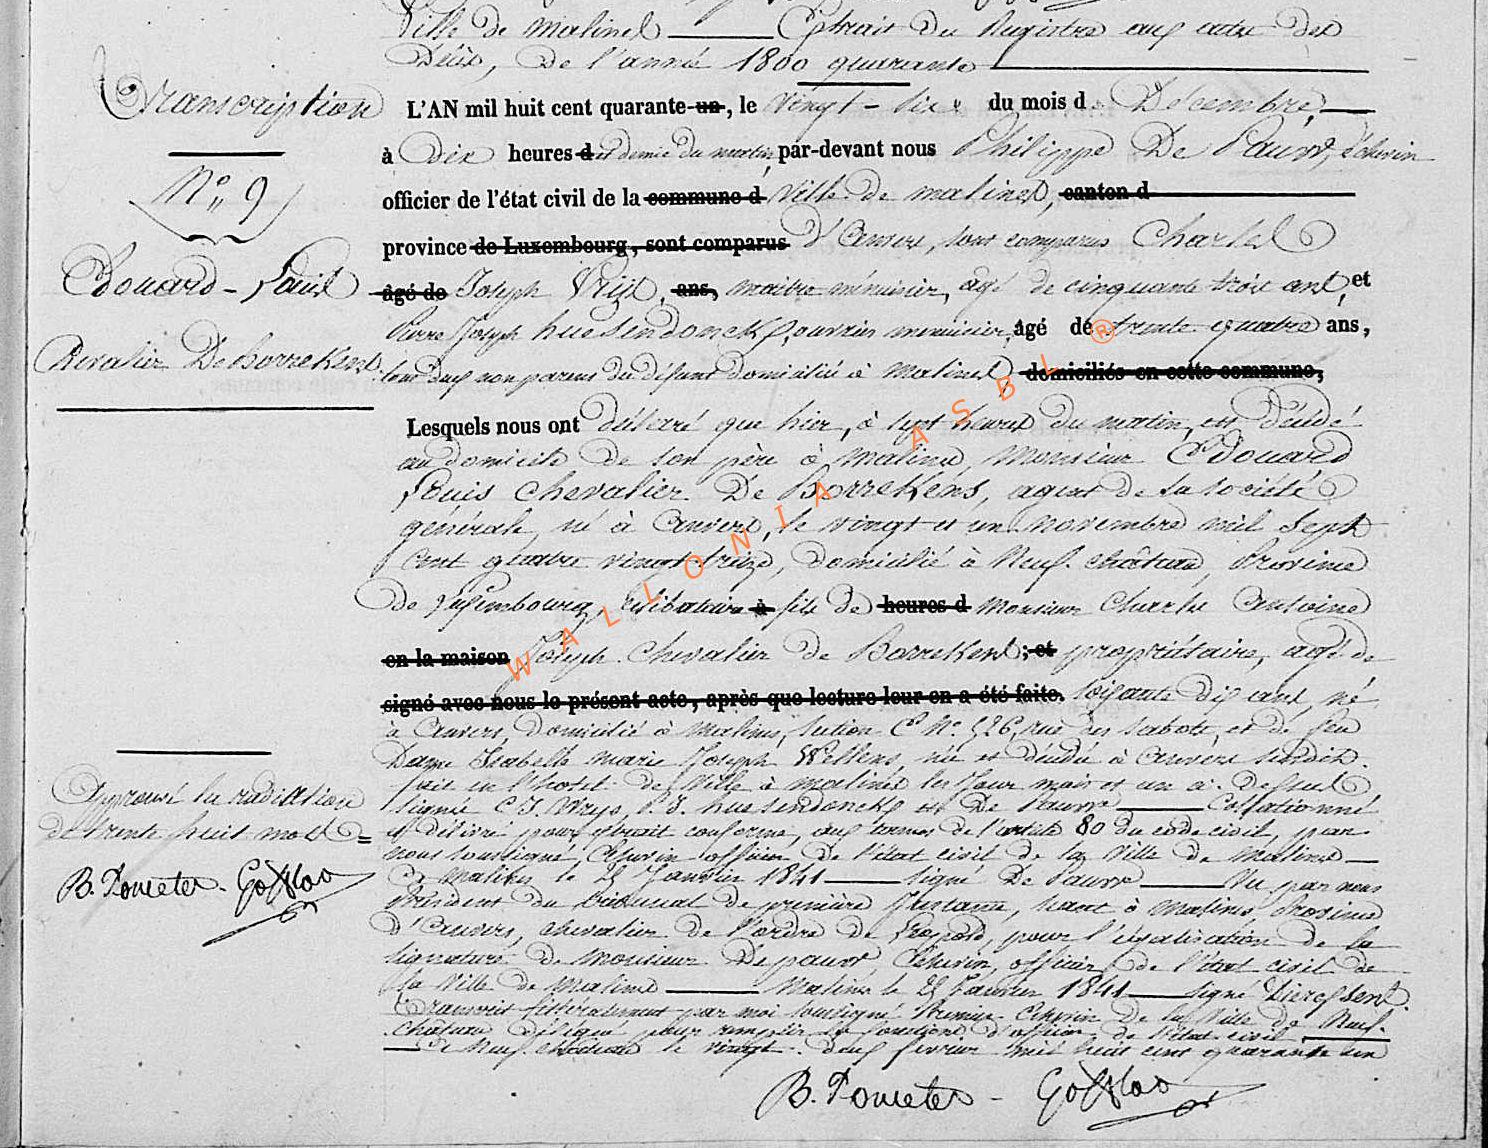 Ville de Malines — Extrait du Registre aux actes des
Décès, de l'année 1800 quarante
Transcription
N° 9
Edouard-Louis
Chevalier De Borrekens
L'AN mil huit cent quarante-un, le vingt-six du mois d Décembre,
à Dix heures d et demie du matin, par-devant nous Philippe De Pauw, Echevin
officier de l'état civil de la commune d Ville de Malines, canton d
province de Luxembourg, sont comparus d'Anvers, sont comparus Charles
âgé de Joseph Vrijs, ans, maître menuisier, âgé de cinquante trois ans, et
Pierre Joseph Huesendonckx, ouvrier menuisier, âgé de trente quatre ans,
tous deux non parens du défunt domiciliés à Malines, domiciliés en cette commune,
Lesquels nous ont déclaré que hier, à sept heures du matin, est décédé
au domicile de son père à Malines, Monsieur Edouard
Louis Chevalier De Borrekens, agent de la société
générale, né à Anvers, le vingt et un novembre mil sept
cent quatre vingt treize, domicilié à Neuf-château, Province
de Luxembourg, célibataire à fils de heures d Monsieur Charles Antoine
en la maison Joseph Chevalier de Borrekens, ; et propriétaire, âgé de
signé avec nous le présent acte, après que lecture leur en a été faite. soixante dix ans, né
à Anvers, domicilié à Malines, Section C N° 526, rue des sabots, et de feu
Dame Isabelle Marie Joseph Wellens, née et décédée à Anvers susdit.
fait en l'hotel de Ville à Malines les Jour mois et an que dessus
signé C. J. Vrijs, P. J. Huesendonckx et De Pauw — Collationné
et délivré pour extrait conforme, aux termes de l'article 80 du code civil, par
nous soussigné, Echevin officier de l'état civil de la Ville de Malines —
Malines le 25 Janvier 1841 — signé De Pauw — Vu par nous
Président du tribunal de première Instance, séant à Malines, Province
d'Anvers, chevalier de l'ordre de Léopold, pour légalisation de la
signature de Monsieur De pauw, Echevin, officier de l'état civil de
la Ville de Malines — Malines le 25 Janvier 1841 — signé
Transcrit littéralement par moi soussigné Premier Echevin De la Ville de Neuf-
château délégué pour remplir les fonctions d'officier de l'état civil
de Neuf-château le vingt-deux février mil huit cent quarante un
Approuvé la radiation
de trente huit mots
B. Poncelet - Gofflao
B. Poncelet - Gofflao
WALLONIA ASBL ®